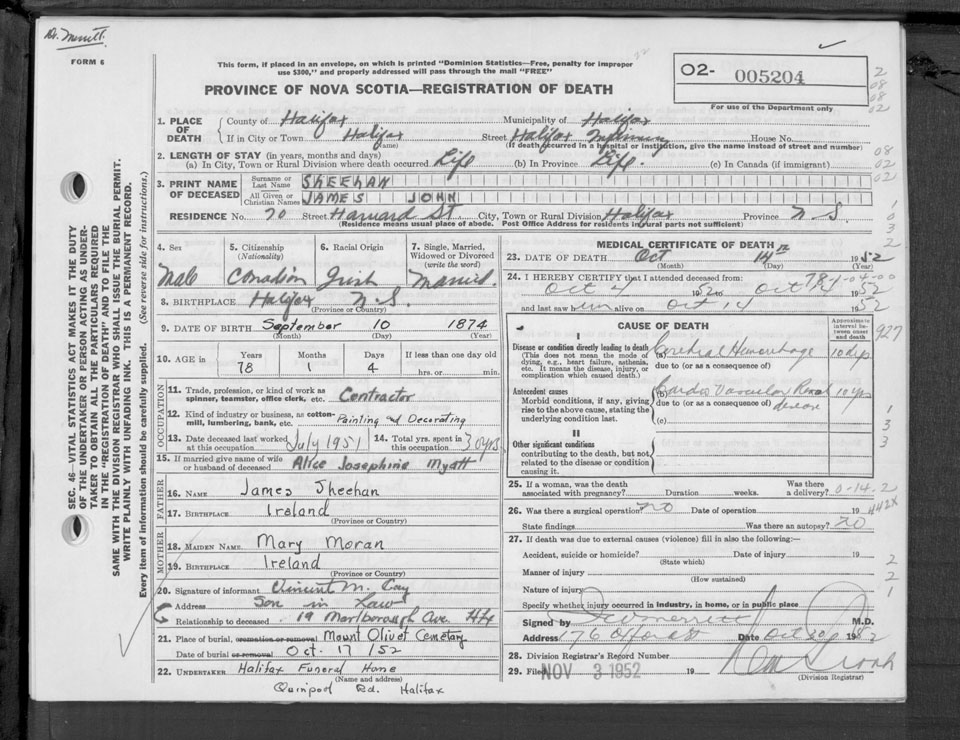 Dr. Merritt.
FORM 6
This form, if placed in an envelope, on which is printed "Dominion Statistics—Free, penalty for improper
use $300," and properly addressed will pass through the mail "FREE"
PROVINCE OF NOVA SCOTIA—REGISTRATION OF DEATH
02- 005204
For use of the Department only
2
08
08
02
1. PLACE OF DEATH
County of Halifax Municipality of Halifax
If in City or Town Halifax Street Halifax Infirmary House No.
(Name) (If death occurred in a hospital or institution, give the name instead of street and number)
2. LENGTH OF STAY (in years, months and days)
(a) In City, Town or Rural Division where death occurred Life (b) In Province Life. (c) In Canada (if immigrant)
08
02
02
3. PRINT NAME OF DECEASED
Surname or Last Name SHEEHAN
All Given or Christian Names JAMES JOHN
RESIDENCE No. 70 Street Harvard St. City, Town or Rural Division Halifax Province N.S.
(Residence means usual place of abode. Post Office Address for residents in rural parts not sufficient)
1
0
3
2
SEC. 46—VITAL STATISTICS ACT MAKES IT THE DUTY
OF THE UNDERTAKER OR PERSON ACTING AS UNDER-
TAKER TO OBTAIN ALL THE PARTICULARS REQUIRED
IN THE "REGISTRATION OF DEATH" AND TO FILE THE
SAME WITH THE DIVISION REGISTRAR WHO SHALL ISSUE THE BURIAL PERMIT.
WRITE PLAINLY WITH UNFADING INK. THIS IS A PERMANENT RECORD.
Every item of information should be carefully supplied. (See reverse side for instructions.)
4. Sex 5. Citizenship 6. Racial Origin 7. Single, Married,
(Nationality) Widowed or Divorced
(write the word)
Male Canadian Irish Married.
8. BIRTHPLACE Halifax N.S.
(Province or Country)
9. DATE OF BIRTH September 10 1874
(Month) (Day) (Year)
10. AGE in Years Months Days If less than one day old
78 1 4 hrs. or min.
OCCUPATION
11. Trade, profession, or kind of work as
spinner, teamster, office clerk, etc. Contractor
12. Kind of industry or business, as cotton-
mill, lumbering, bank, etc. Painting & Decorating
13. Date deceased last worked at this occupation July 1951 14. Total yrs. spent in this occupation 30 yrs
15. If married give name of wife
or husband of deceased Alice Josephine Myatt
FATHER
16. NAME James Sheehan
17. BIRTHPLACE Ireland
(Province or Country)
MOTHER
18. MAIDEN NAME Mary Moran
19. BIRTHPLACE Ireland
(Province or Country)
20. Signature of informant Vincent M.
Address Son in Law
Relationship to deceased 19 Marlborough Ave. Hfx
21. Place of burial, cremation or removal Mount Olivet Cemetary
Date of burial or removal Oct. 17 /52
22. UNDERTAKER Halifax Funeral Home
(Name and address)
Quinpool Rd. Halifax
MEDICAL CERTIFICATE OF DEATH
23. DATE OF DEATH Oct 14th 1952
(Month) (Day) (Year)
24. I HEREBY CERTIFY that I attended deceased from:
Oct 4 1952 to Oct 1952
784-04-00
and last saw him alive on Oct 14 1952
CAUSE OF DEATH
Approximate interval between onset and death
927
I
Disease or condition directly leading to death
(This does not mean the mode of
dying, e.g., heart failure, asthenia,
etc. It means the disease, injury, or
complication which caused death.)
(a) Cerebral Hemorrhage 10 dys
due to (or as a consequence of)
Antecedent causes
Morbid conditions, if any, giving
rise to the above cause, stating the
underlying condition last.
(b) Cardio Vascular Renal 10 yrs
due to (or as a consequence of) disease
(c)
1
3
3
II
Other significant conditions
contributing to the death, but not
related to the disease or condition
causing it.
25. If a woman, was the death
associated with pregnancy? Duration weeks. Was there a delivery?
0-14-2
442X
26. Was there a surgical operation? no Date of operation 19
State findings Was there an autopsy? no
27. If death was due to external causes (violence) fill in also the following:—
Accident, suicide or homicide? Date of injury 19
(State which)
Manner of injury
(How sustained)
Nature of injury
2
2
1
Specify whether injury occurred in industry, in home, or in public place
Signed by Merritt M.D.
Address 176 Date Oct 20 1952
28. Division Registrar's Record Number
29. Filed NOV 3 1952 19
(Division Registrar)